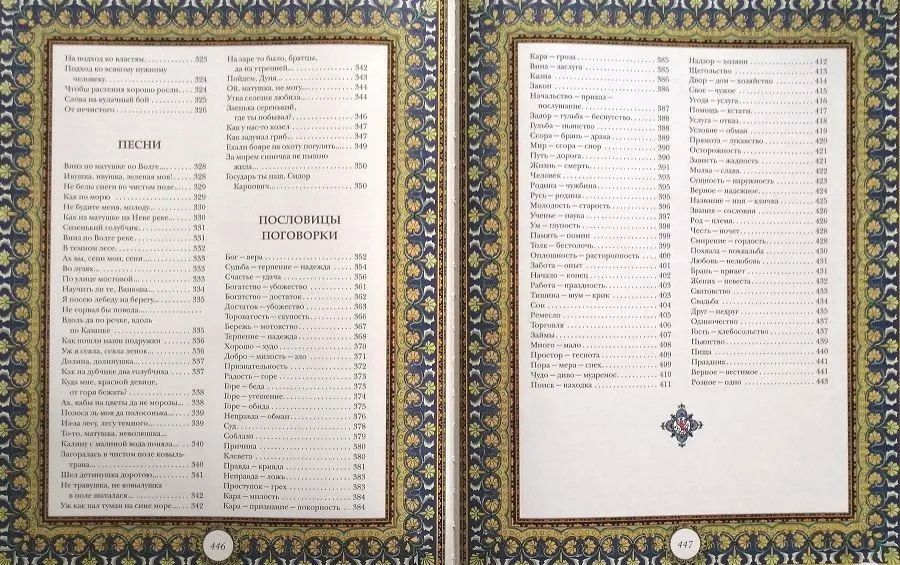 На подход ко властям. 323
Подход ко всякому нужному
человеку. 324
Чтобы растения хорошо росли. 324
Слова на кулачный бой 325
От нечистого 326
ПЕСНИ
Вниз по матушке по Волге... 328
Ивушка, ивушка, зеленая моя! 328
Не белы снеги во чистом поле... 329
Как по морю 329
Не будите меня, молоду... 330
Как на матушке на Неве реке... 330
Сизенький голубчик 331
Вниз по Волге реке 331
В темном лесе 332
Ах вы, сени мои, сени... 333
Во лузях... 333
По улице мостовой 333
Научить ли те, Ванюша 334
Я посею лебеду на берегу... 335
Не сорвал бы повода...
Вдоль да по речке, вдоль
по Казанке 335
Как пошли наши подружки 336
Уж я сеяла, сеяла ленок 336
Долина, долинушка 337
Как на дубчике два голубчика 337
Куда мне, красной девице,
от горя бежать? 338
Ах, кабы на цветы да не морозы... 338
Полоса ль моя да полосонька... 339
Из-за лесу, лесу темного... 339
То-то, матушка, неволюшка...
Калину с малиной вода поняла... 340
Загоралась в чистом поле ковыль-
трава... 340
Шел детинушка дорогою... 341
Не травушка, не ковылушка
в поле шаталася... 342
Уж как пал туман на сине море... 342
На заре то было, братцы,
да на утренней... 342
Пойдем, Дуня 343
Ой, матушка, не могу 344
Утка селезня любила... 344
Заенька серенький,
где ты побывал? 346
Как у нас-то козел 347
Как задумал гриб... 347
Ехали бояре на охоту погулять 349
За морем синичка не пышно
жила... 350
Государь ты наш, Сидор
Карпович 350
ПОСЛОВИЦЫ
ПОГОВОРКИ
Бог — вера 352
Судьба — терпение — надежда 354
Счастье — удача 356
Богатство — убожество 361
Богатство — достаток 362
Достаток — убожество 363
Тороватость — скупость 366
Бережь — мотовство 367
Терпение — надежда 368
Хорошо — худо 370
Добро — милость — зло 371
Признательность 372
Радость — горе 373
Горе — беда 373
Горе — утешение 374
Горе — обида 375
Неправда — обман 376
Суд 378
Соблазн 379
Причина 380
Клевета 380
Правда — кривда 381
Неправда — ложь 383
Проступок — грех 383
Кара — милость 384
Кара — признание — покорность 384
446
Кара — гроза 385
Вина — заслуга 385
Казна 386
Закон 386
Начальство — приказ —
послушание 387
Задор — гульба — беспутство 388
Гульба — пьянство 388
Ссора — брань — драка 389
Мир — ссора — спор 390
Путь — дорога 390
Жизнь — смерть 391
Человек 393
Родина — чужбина 395
Русь — родина 395
Молодость — старость 396
Ученье — наука 397
Ум — глупость 397
Память — помин 399
Толк — бестолочь 399
Оплошность — расторопность 400
Забота — опыт 401
Начало — конец 402
Работа — праздность 402
Тишина — шум — крик 403
Сон 404
Ремесло 405
Торговля 406
Займы 407
Много — мало 408
Простор — теснота 409
Пора — мера — спех 409
Чудо — диво — мудреное 410
Поиск — находка 411
Надзор — хозяин 412
Щегольство 413
Двор — дом — хозяйство 414
Свое — чужое 415
Угода — услуга 416
Помощь — кстати 417
Услуга — отказ 418
Условие — обман 419
Прямота — лукавство 420
Осторожность 421
Зависть — жадность 421
Молва — слава 422
Сущность — наружность 423
Верное — надежное 424
Название — имя — кличка 425
Звания — сословия 426
Род — племя 427
Честь — почет 428
Смирение — гордость 428
Похвала — похвальба 430
Любовь — нелюбовь 431
Брань — привет 431
Жених — невеста 432
Сватовство 433
Свадьба 434
Друг — недруг 435
Одиночество 437
Гость — хлебосольство 437
Пьянство 439
Пища 440
Праздник 441
Верное — вестимое 441
Розное — одно 443
447